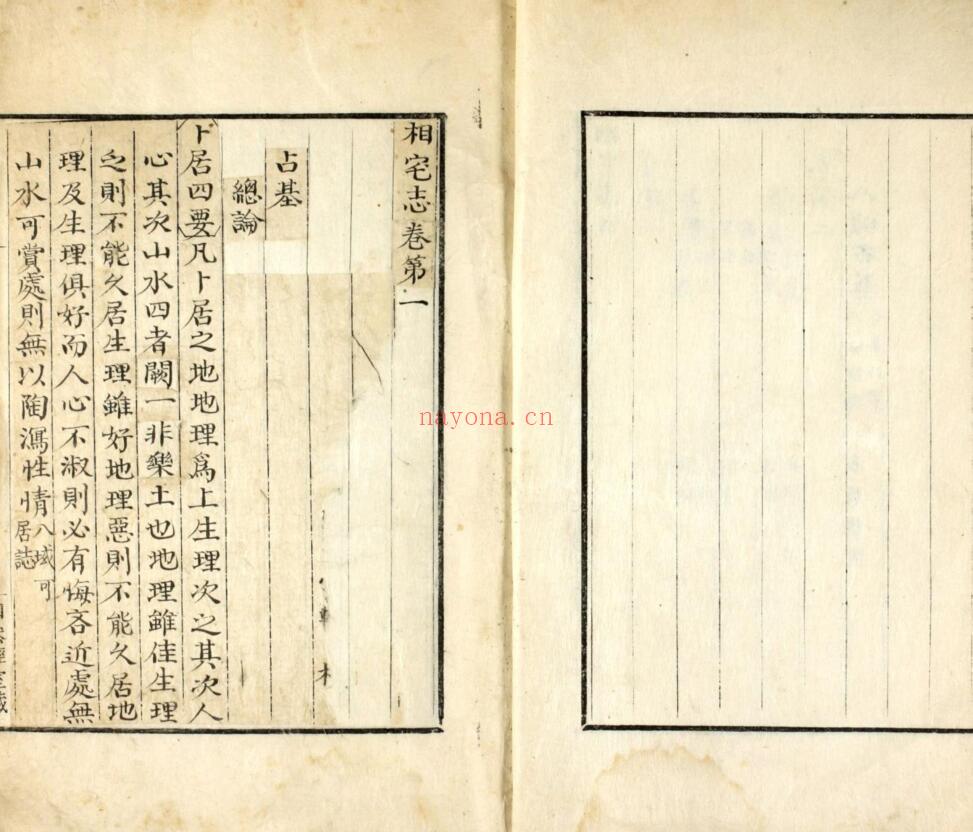 相宅志卷第一
占基
總論
卜居四要凡卜居之地地理爲上生理次之其次人
心其次山水四者闕一非樂土也地理雖佳生理
乏則不能久居生理雖好地理惡則不能久居地
理及生理俱好而人心不淑則必有悔吝近處無
山水可賞處則無以陶瀉性情八域可居誌
nayona.cn